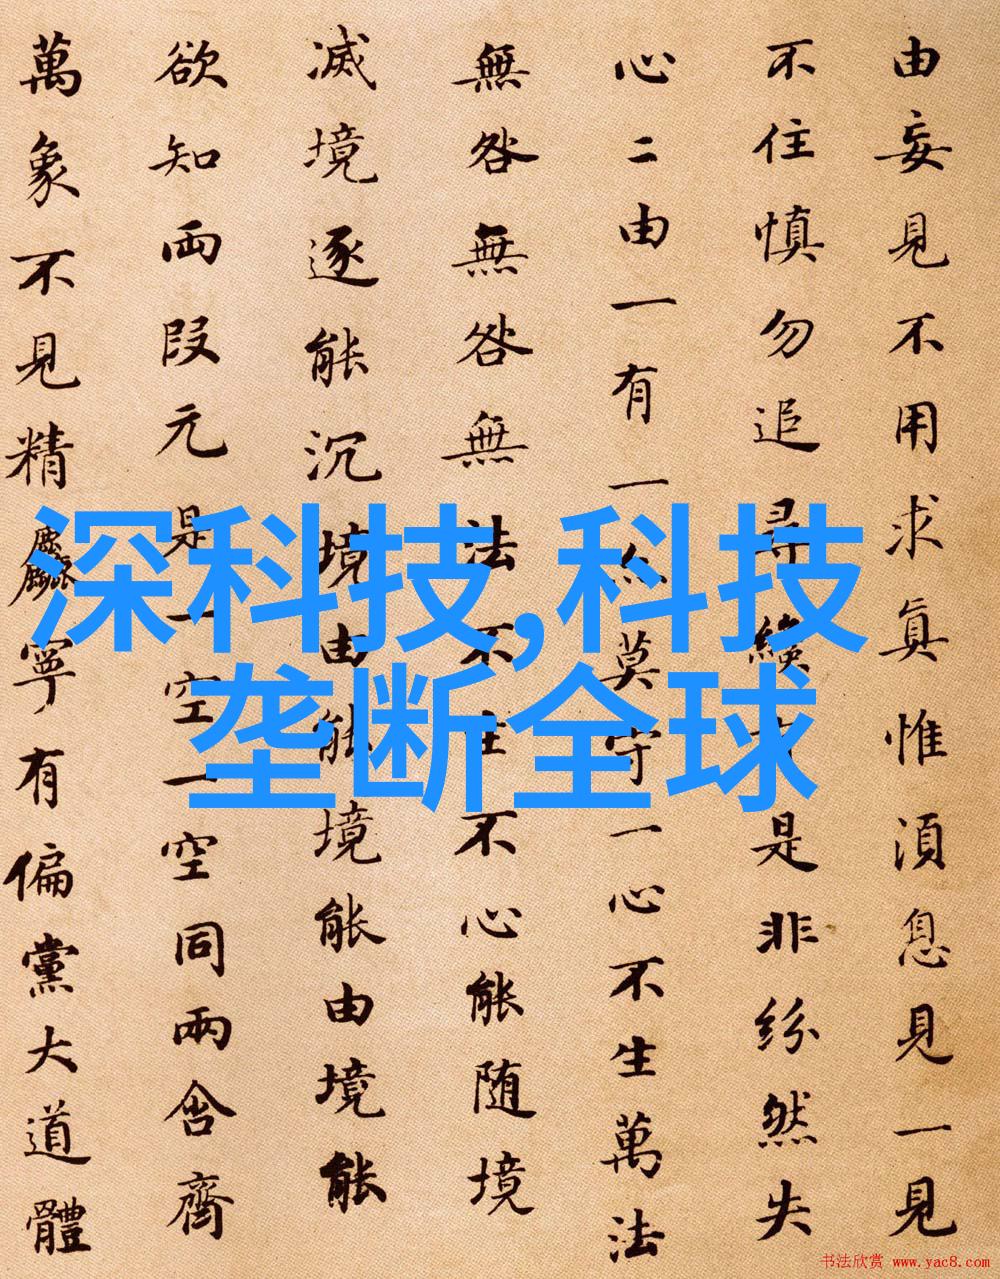 由妄見不用求真惟湏息見一見
不住慎勿追尋纔有是非紛然失
心二由一有一亦莫守一心不生萬法
無咎無咎無法不生不心能随境
滅境逐能沉境由能境能由境能
欲知両段元是一空一空同兩含齊
萬象不見精麤寧有偏黨大道體
深科技,科技
垄断全球
书法欣赏 www.yac8.com